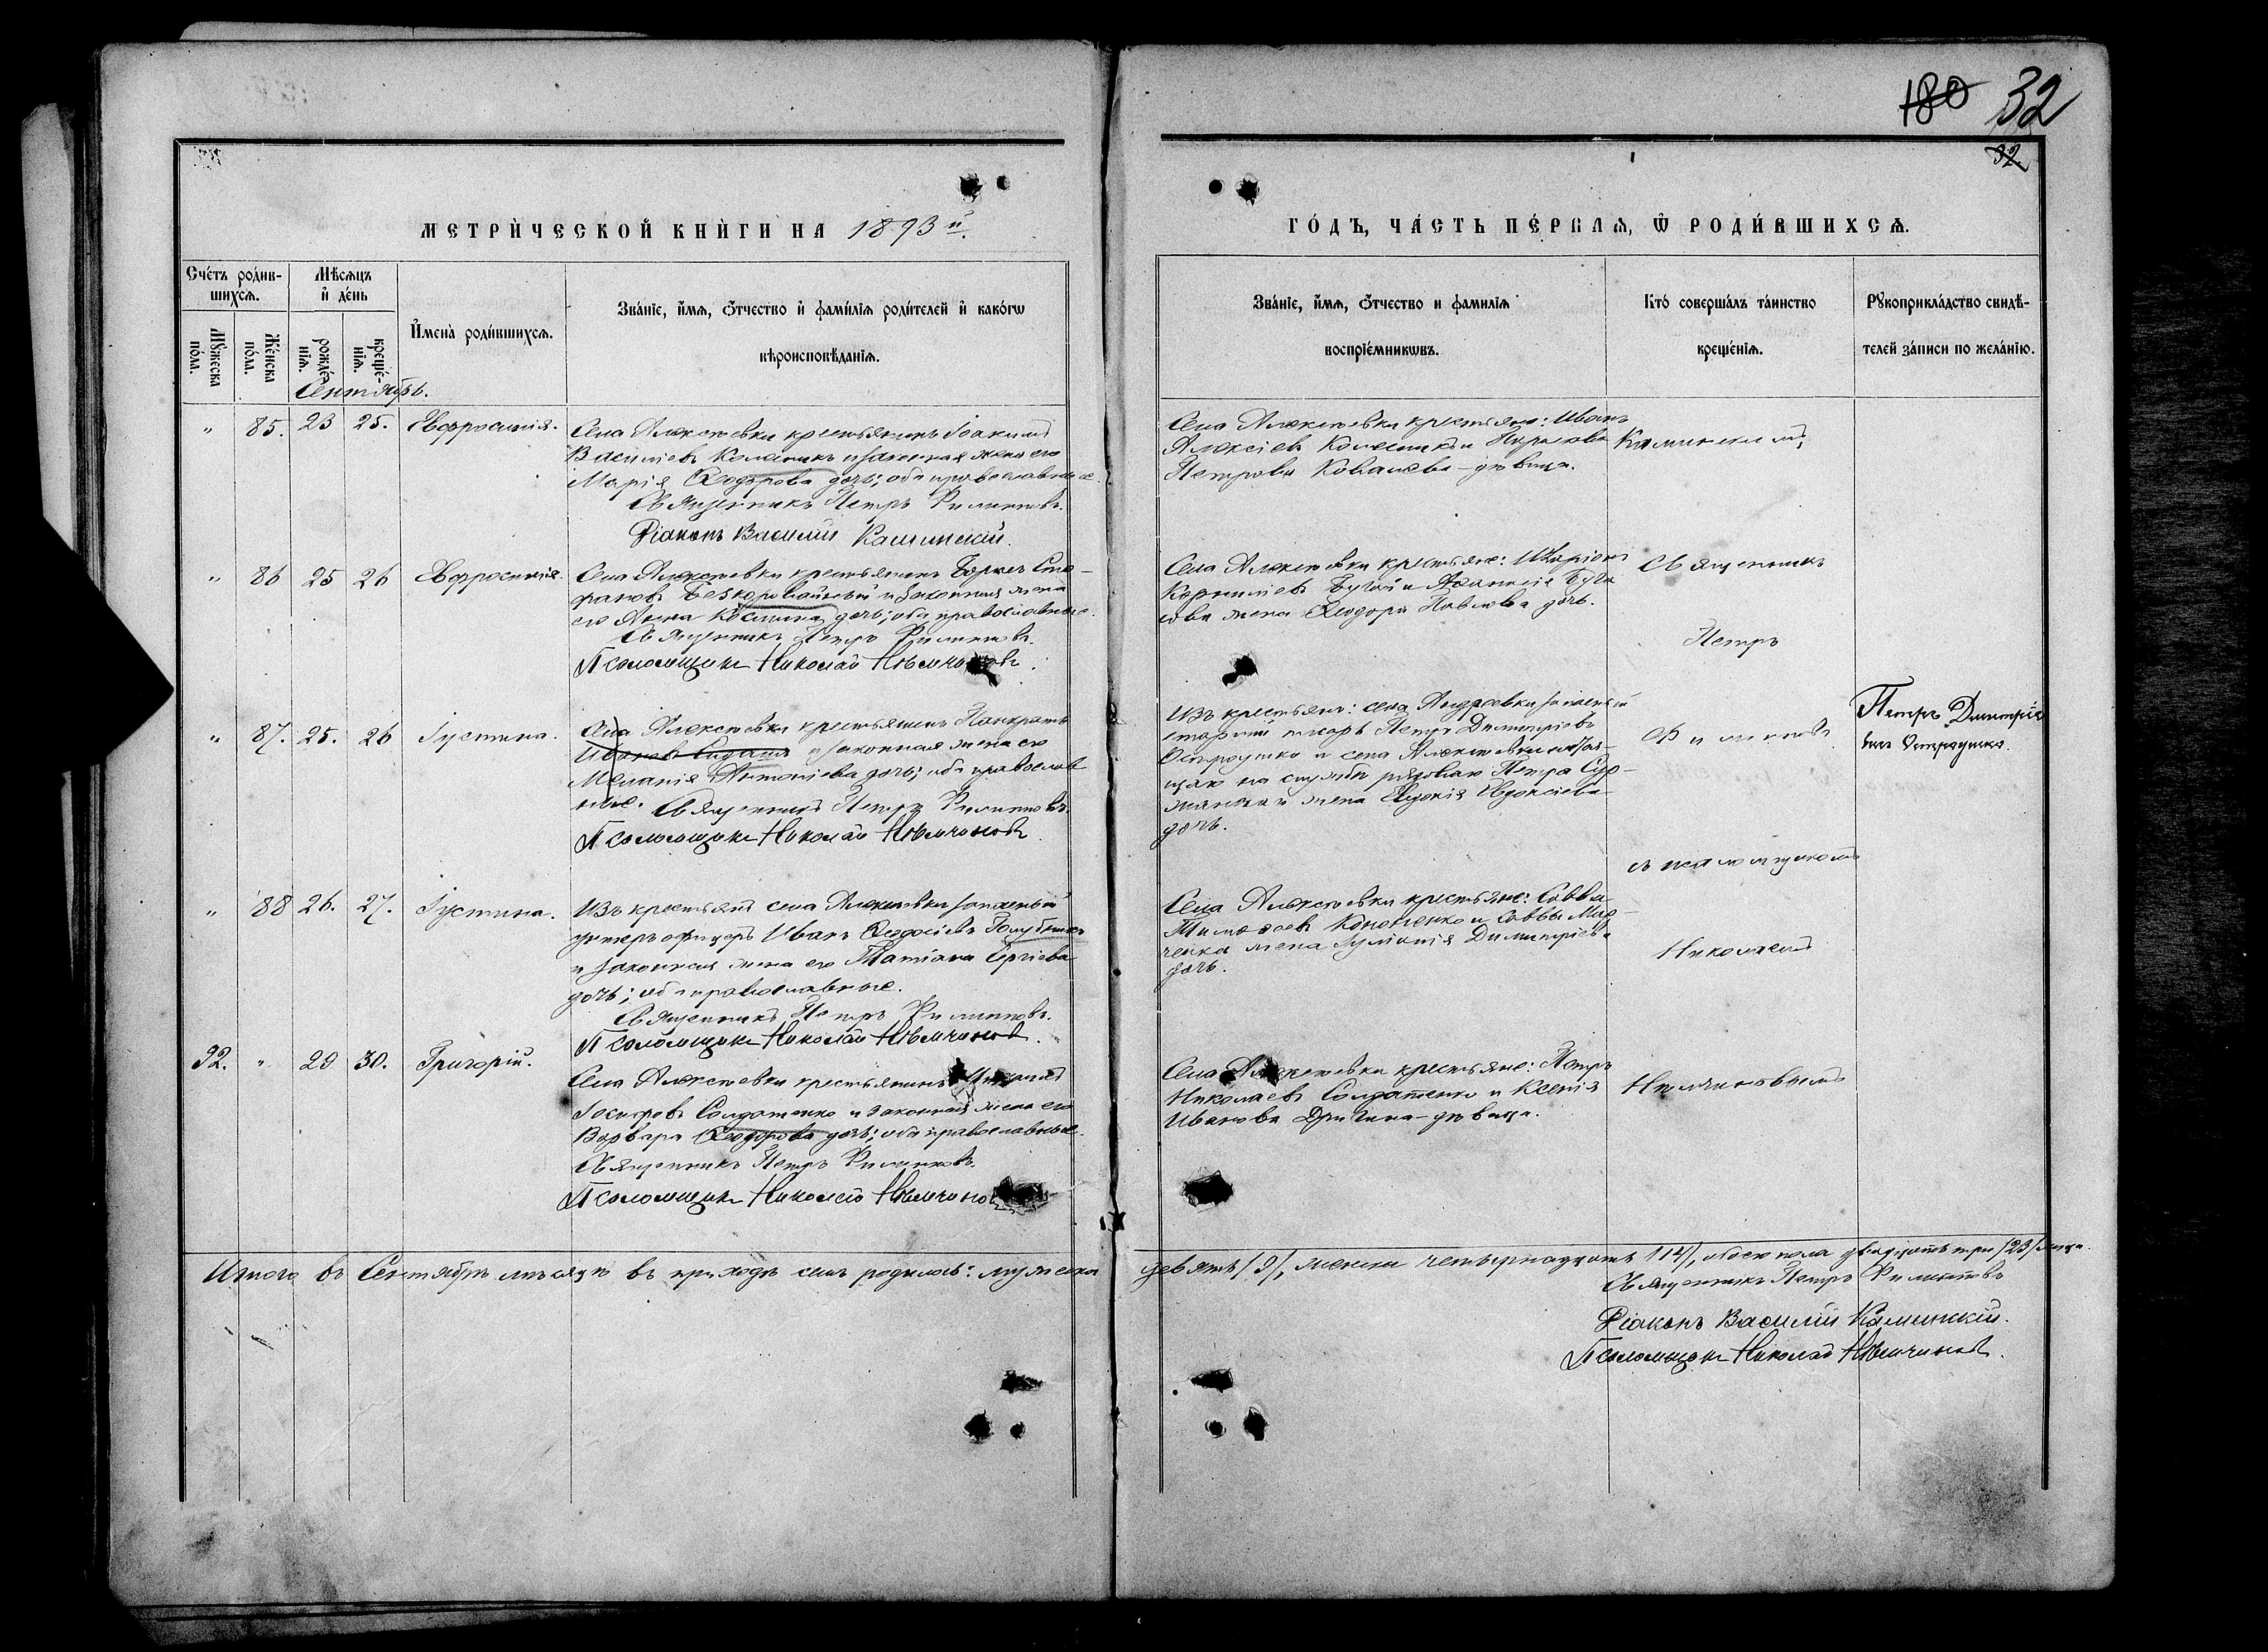 180 32
32
МЕТРИ́ЧЕСКОЙ КНИ́ГИ НА 1893й.
ГО́ДЪ, ЧА́СТЬ ПЕ́РВАѦ, Ѿ РОДИ́ВШИХСѦ.
Сче́тъ роди́в-
шихсѧ.
Мꙋ́жеска по́ла.
Же́нска по́ла.
Мѣ́сѧцъ
и҆ де́нь
рожде́-
нїѧ.
креще́-
нїѧ.
И҆мена̀ роди́вшихсѧ.
Зва́нїе, и҆́мѧ, ѻ҆́тчество и҆ фамѝлїѧ роди́телей и҆ како́гѡ
вѣроисповѣ́данїѧ.
Зва́нїе, и҆́мѧ, ѻ҆́тчество и фами́лїѧ
воспрїе́мникѡвъ.
Кто́ соверша́лъ та́инство
креще́нїѧ.
Рꙋкоприкла́дство свидѣ́-
телей за́писи по жела́нїю.
Сентябрь.
" 85. 23 25. Евфросинія.
Села Алексѣевки крестьянинъ Іоакимъ
Василіевъ Колѣсникъ и законная жена его
Марія Ѳеодорова дочь; оба православные.
Священникъ Петръ Филипповъ.
Діаконъ Василій Каминскій.
Села Алексѣевки крестьяне: Иванъ
Алексіевъ Колесникъ и Параскева
Петрова Ковалева - дѣвица.
Каминскимъ,
" 86 25 26 Евфросинія.
Села Алексѣевки крестьянинъ Борисъ Сте-
фановъ Безкоровайный и законная жена
его Анна Космина дочь; оба православные.
Священникъ Петръ Филипповъ.
Псаломщикъ Николай Нѣмчиновъ.
Села Алексѣевки крестьяне: Иларіонъ
Корниліевъ Бугай и Аѳанасія Буга
ева жена Ѳеодора Павлова дочь.
Священникъ
Петръ
" 87. 25. 26 Іустина.
Села Алексѣевки крестьянинъ Панкратъ
Ивановъ и законная жена его
Меланія Антоніева дочь; оба православ
ные. Священникъ Петръ Филипповъ.
Псаломщикъ Николай Нѣмчиновъ.
Изъ крестьянъ: села Андреевки запасный
старшій писарь Петръ Димитріевъ
Остроушко и села Алексѣевки состоя-
щаго на службѣ рядоваго Петра Сур-
жана жена Евдокія Евдокіева
дочь.
Филипповъ
Петръ Димитріе
вичъ Остроушко.
съ псаломщикомъ
" 88 26. 27. Іустина.
Изъ крестьянъ села Алексѣевки запасный
унтеръ офицеръ Иванъ Ѳеодосіевъ Голубникъ
и законная жена его Татіана Сергіева
дочь; оба православные.
Священникъ Петръ Филипповъ.
Псаломщикъ Николай Нѣмчиновъ.
Села Алексѣевки крестьяне: Савва
Тимоѳеевъ Кононенко и Саввы Мар-
ченка жена Іуліанія Димитріева
дочь.
Николаемъ
92. " 29 30. Григорій.
Села Алексѣевки крестьянинъ
Іосифовъ Солдатенко и законная жена его
Варвара Ѳеодорова дочь; оба православные.
Священникъ Петръ Филипповъ.
Псаломщикъ Николай Нѣмчинов
Села Алексѣевки крестьяне: Петръ
Николаевъ Солдатенко и Ксенія
Иванова Дригина - дѣвица.
Нѣмчиновымъ
Итого въ Сентябрѣ мѣсяцѣ въ приходѣ семъ родилось: мужеска
девять /9/, женска четырнадцать /14/, обоего пола двадцать три /23/ лица.
Священникъ Петръ Филипповъ
Діаконъ Василій Каминскій.
Псаломщикъ Николай Нѣмчиновъ.